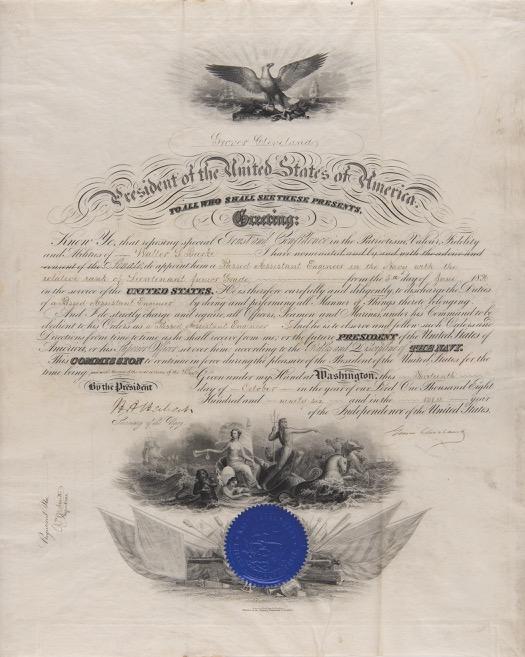 Grover Cleveland,
President of the United States of America.
TO ALL WHO SHALL SEE THESE PRESENTS,
Greeting:
Know Ye, that reposing special Trust and Confidence in the Patriotism, Valour, Fidelity
and Abilities of Walter I have nominated, and by and with the advice and
consent of the Senate, do appoint him a Passed Assistant Engineer in the Navy with the
relative rank of Lieutenant Junior Grade from the day of June 1896
in the service of the UNITED STATES. He is therefore carefully and diligently to discharge the Duties
of a Passed Assistant Engineer by doing and performing all Manner of Things thereto belonging.
And I do strictly charge and require all Officers, Seamen and Marines, under his Command to be
obedient to his Orders as a Passed Assistant Engineer And he is to observe and follow such Orders and
Directions from time to time as he shall receive from me, or the future PRESIDENT of the United States of
America, or his Superior Officer set over him, according to the Rules and Discipline of THE NAVY.
This COMMISSION to continue in force during the pleasure of the President of the United States, for the
time being
Given under my Hand at Washington, this
By the President
Day of October in the year of our Lord One Thousand Eight
Hundred and ninety six and in the year
of the Independence of the United States.
Secretary of the Navy.
Grover Cleveland